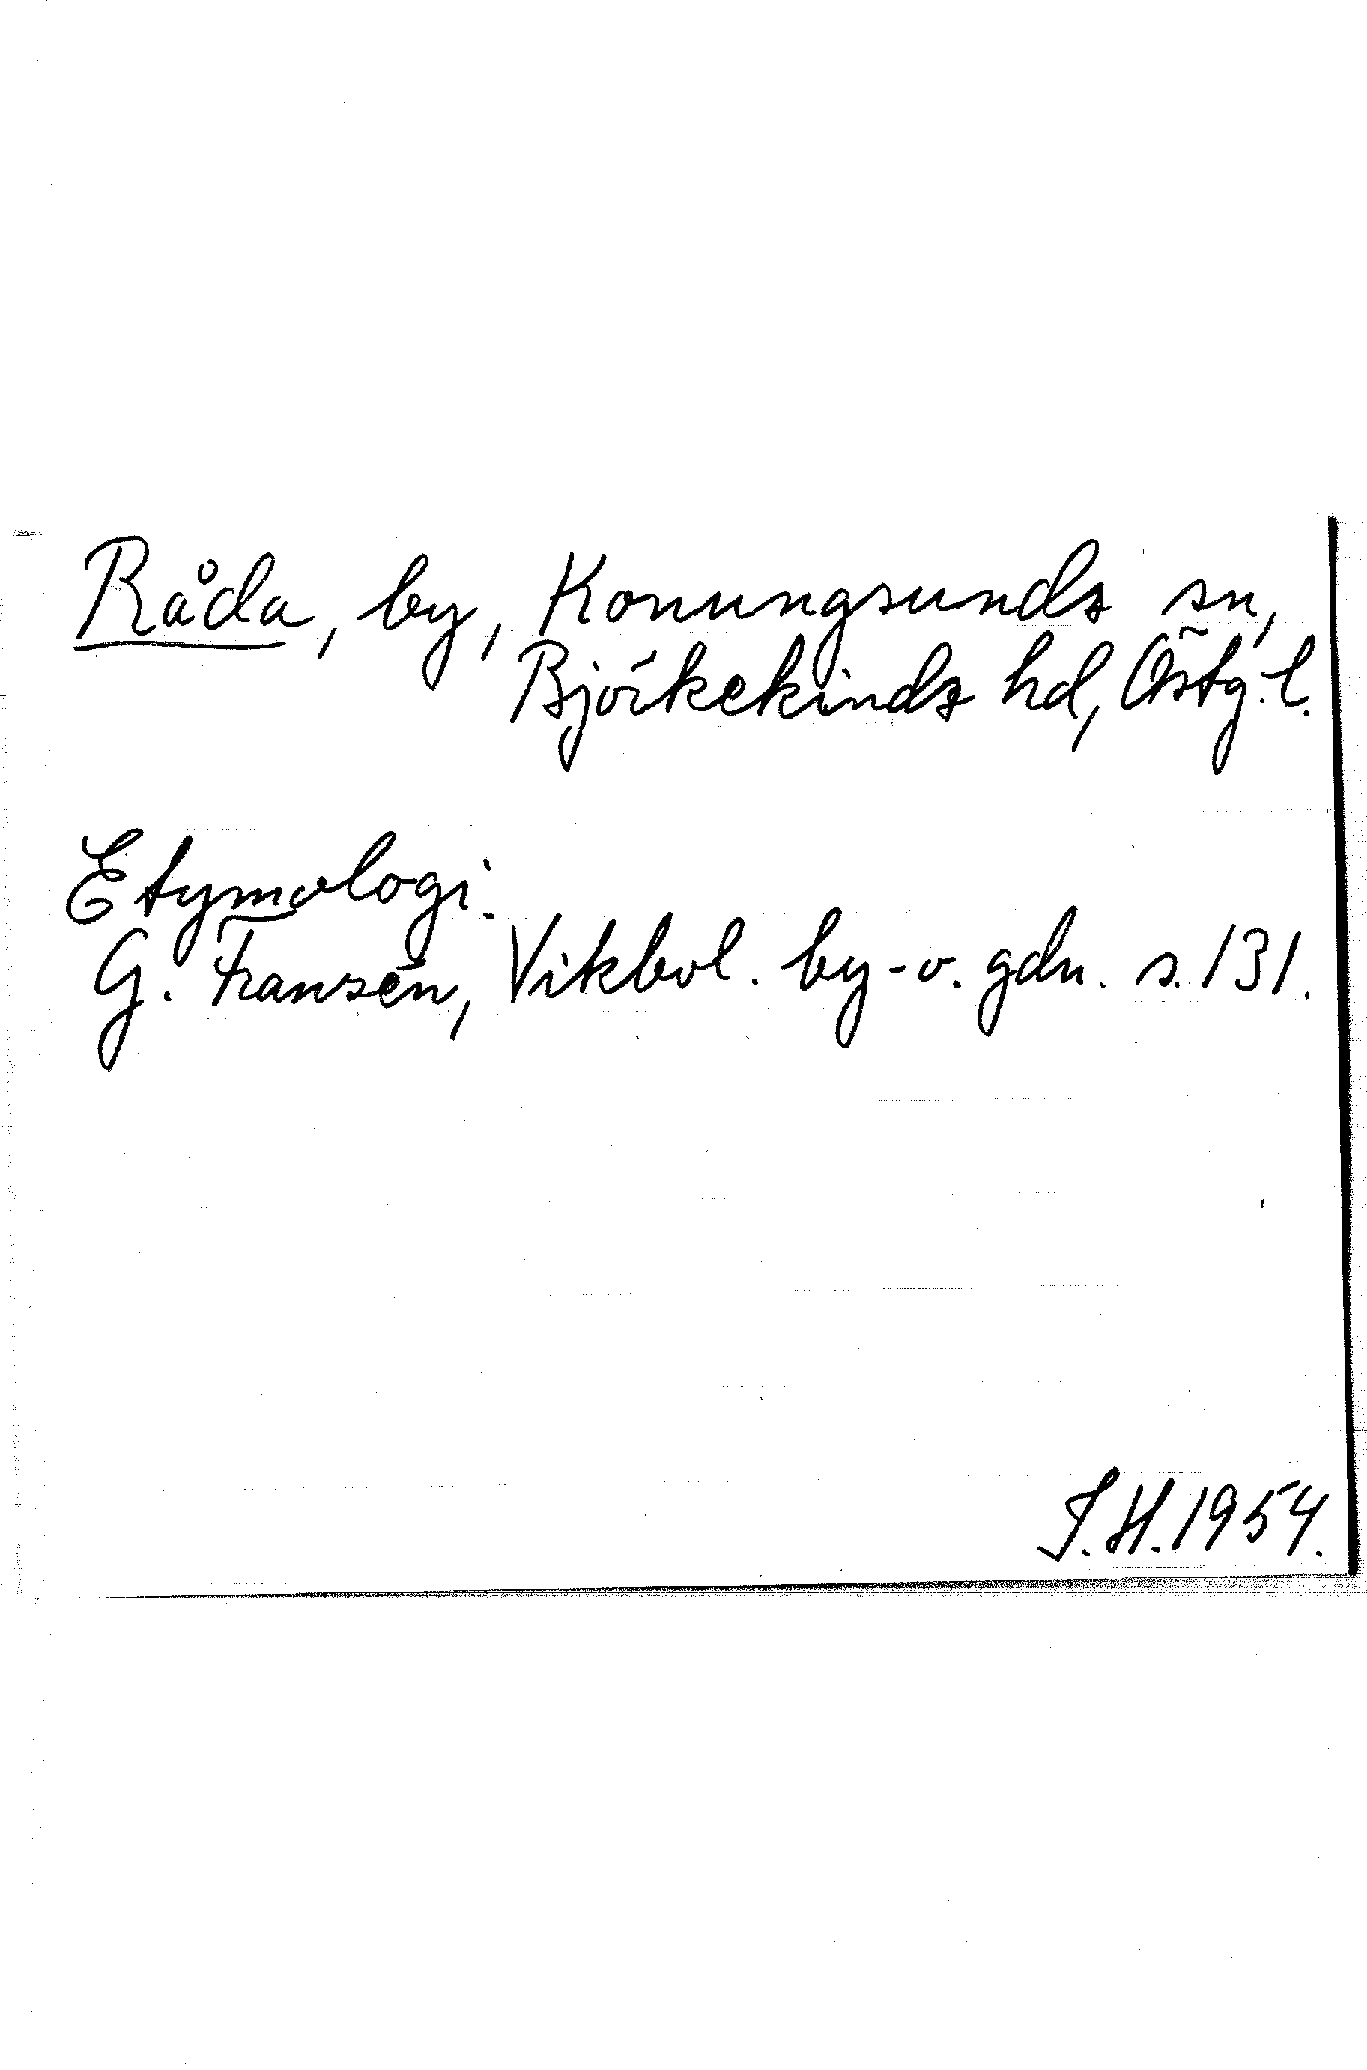 Råda, by, Konungsunds sn,
Björkekinds hd, Östg. l.
Etymologi.
G. Franzén, Vikbol. by- o. gdn. s. 131.
I. H. 1954.